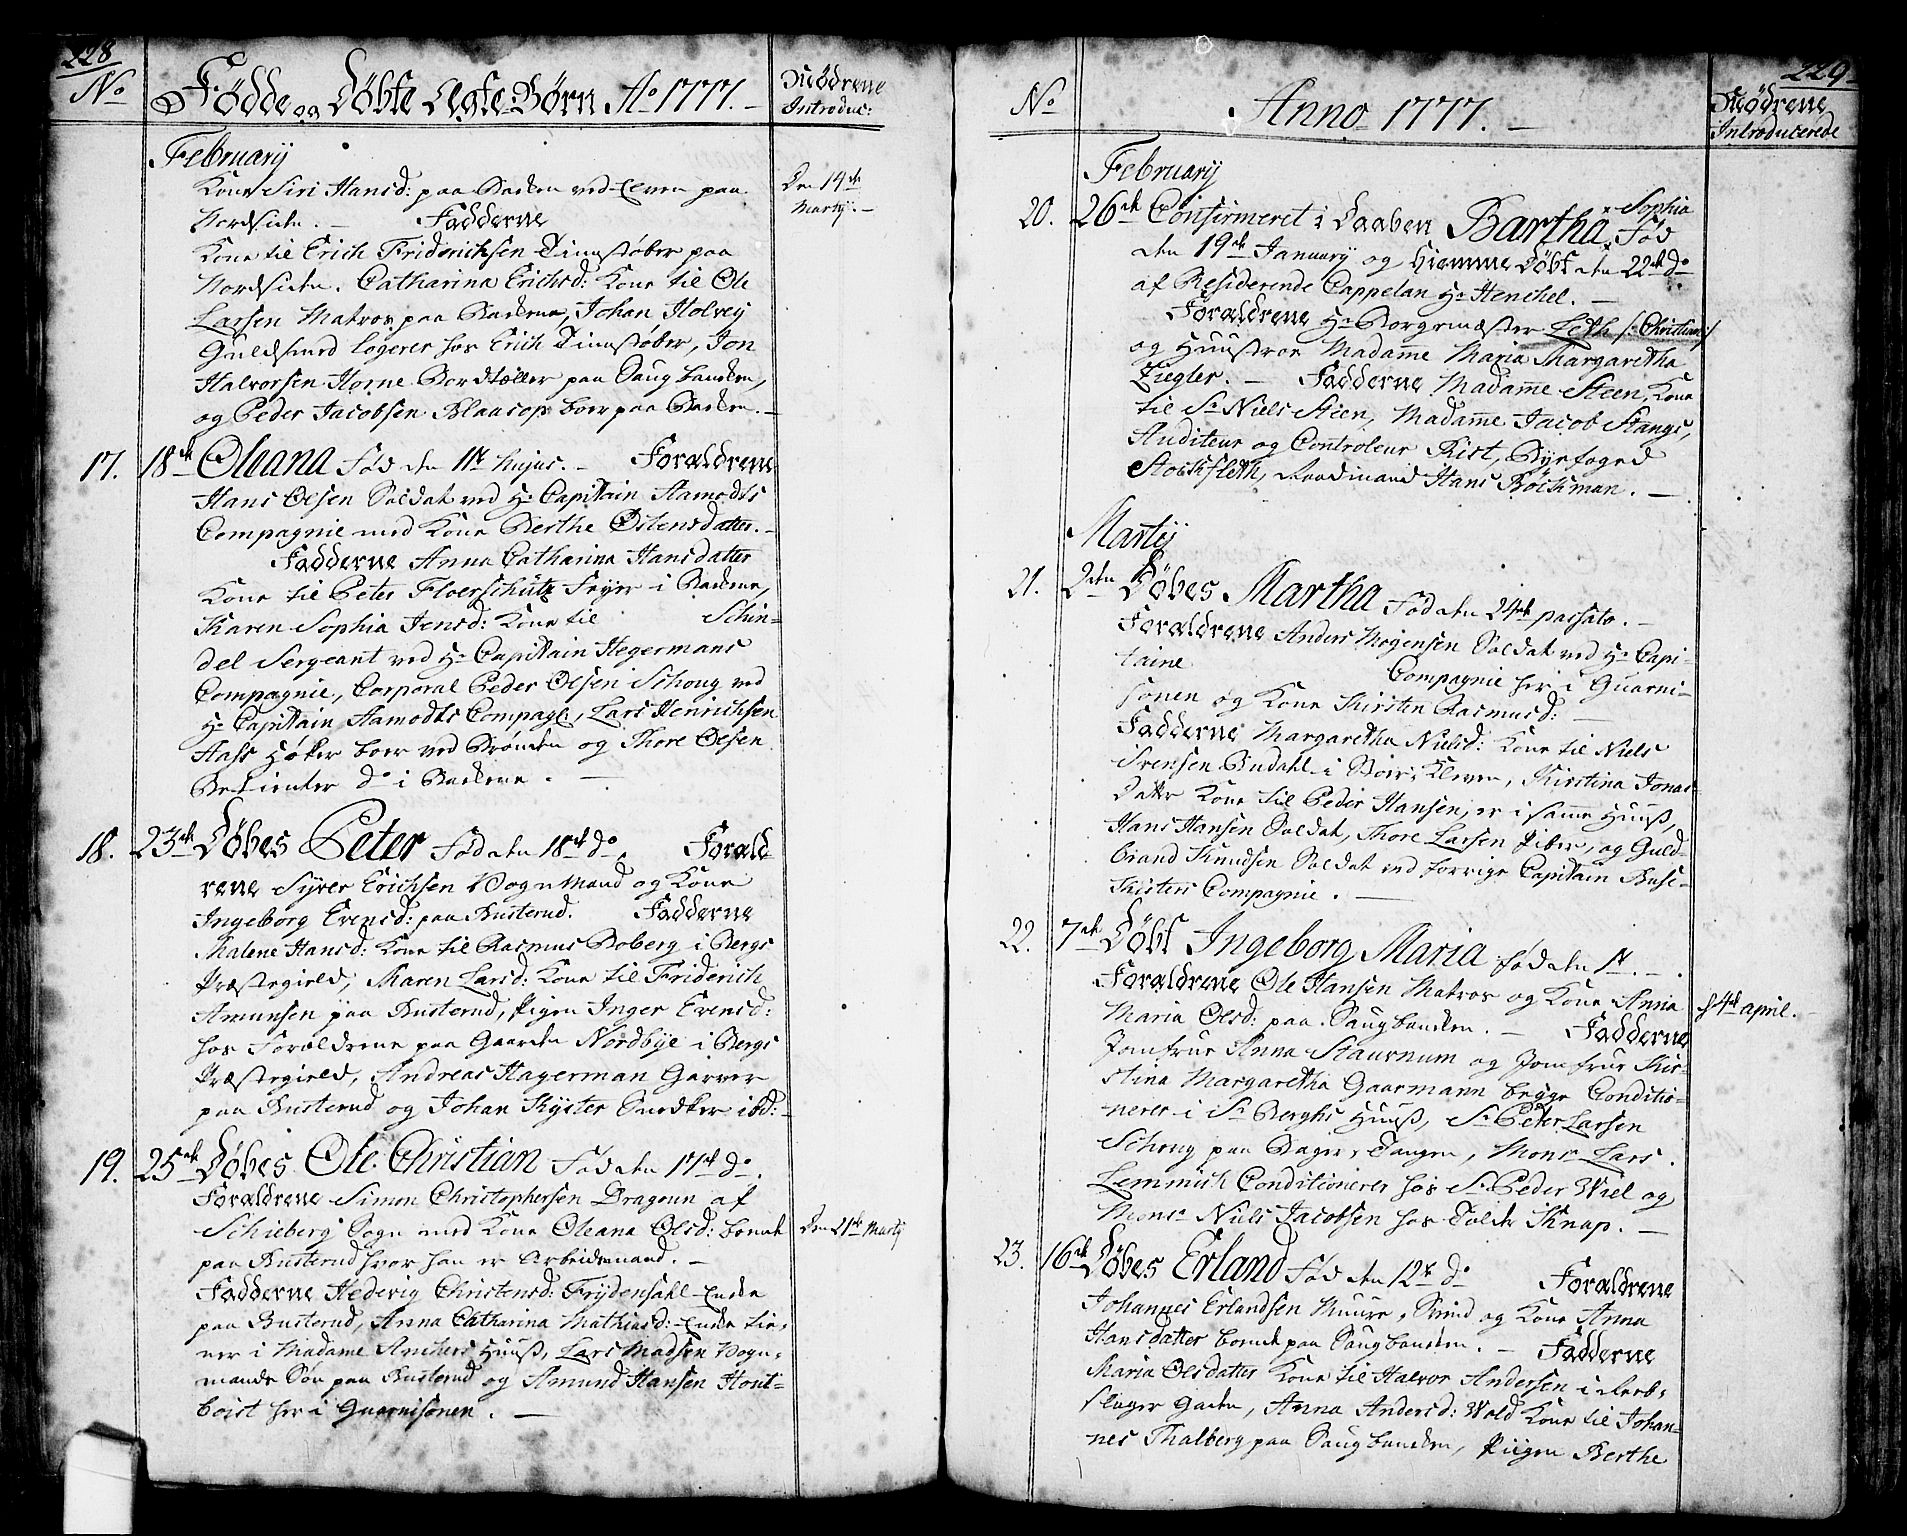 228
No
Födde og Döbte Ægte-Börn Ao 1777. –
Mödrene
Introduc:
February
Kone Siri Hansd: paa Backen ved Elven paa
Nordsiden. – Fadderne
Kone til Erich Friderichsen Tinnstöber paa
Nordsiden. Catharina Erichsd: Kone til Ole
Larsen Matros paa Backerne, Johan Holvey
Guldsmed logerer hos Erich Tinnstöber, Jon
Halvorsen Horne Bordtæller paa Saugbancken,
og Peder Jacobsen Blaacop boer paa Backen. –
Den 14de
Martij. –
17. 18de Oleana Fød den 11te hujus. – Forældrene
Hans Olsen Soldat ved Hr Capitain Aamodts
Compagnie med Kone Berthe Østensdatter. –
Fadderne Anna Catharina Hansdatter
Kone til Peter Floerschütz Fryer i Backerne,
Karen Sophia Jensd: Kone til Schin-
del Sergeant ved Hr Capitain Hegermans
Compagnie, Corporal Peder Olsen Schoug ved
Hr Capitain Aamodts Compagn:, Lars Henrichsen
Aass Höker boer ved Brönden og Thore Olsen
Betienter do i Backerne. –
18. 23de Döbes Peter Fød den 18de do. Foræld
rene Syver Erichsen Vognmand og Kone
Ingeborg Evensd: paa Busterud. Fadderne
Malene Hansd: Kone til Rasmus Boberg i Bergs
Præstegield, Maren Larsd: Kone til Friderich
Amunsen paa Busterud, Pigen Inger Evensd:
hos Forældrene paa Gaarden Nordbye i Bergs
Præstegield, Andreas Hagerman Garver
paa Busterud og Johan Kyster Snedker ibd: –
19. 25de Döbes Ole Christian Fød den 17de do.
Forældrene Simon Christophersen Dragoun af
Schieberg Sogn med Kone Oleana Olsd: boende
paa Busterud hvor han er Arbeidsmand. –
Fadderne Hedevig Christensd: Frydensahl Encke
paa Busterud, Anna Catharina Mathiasd: Encke tie-
ner i Madame Anchers Huus, Lars Madsen Vogn-
mands Søn paa Busterud og Amund Hansen Hout-
boist her i Guarnisonen. –
Den 21de Martij
229
No
Anno 1777. –
Mödrene
Introducerede
February
20. 26de Confirmeret i Daaben Bartha Sophia Fød
den 19de January og Hiemme Döbt den 22de do
af Residerende Cappelan Hr Henchel. –
Forældrene Hr Borgemæster Leth /: Christian :/
og Huustroe Madame Maria Margaretha
Ziegler. – Fadderne Madame Steen, Kone
til Sr Niels Steen, Madame Jacob Stangs,
Auditeur og Controleur Rist, Byefoged
Stockfleth, Raadmand Hans Böckman. –
Martij
21. 2den Döbes Martha Fød den 24de passato. –
Forældrene Anders Mogensen Soldat ved Hr Capi-
taine Compagnie her i Guarni-
sonen og Kone Kirsten Rasmusd: –
Fadderne Margaretha Nielsd: Kone til Niels
Svensen Budahl i Bøer, Kleven, Kirstina Jonas
Datter Kone til Peder Hansen, er i samme Huus,
Hans Hansen Soldat, Thore Larsen Piber, og Guld-
brand Knudsen Soldat ved forrige Capitain Buse-
Kisters Compagnie. –
22. 7de Döbt Ingeborg Maria Fød den 1te. –
Forældrene Ole Hansen Matros og Kone Anna
Maria Olsd: paa Saugbancken. – Fadderne
Jomfrue Anna Staurnum og Jomfrue Kir-
stina Margaretha Gaarmann begge Conditio-
nerer i Sr Berghs Huus, Sr Peter Larsen
Schoug paa Bager, Tangen, Monsr Lars
Lemmich Conditionerer hos Sr Peder Wiel og
Monsr Niels Jacobsen hos Tolder Knap. –
d 4de april. –
23. 16de Döbes Erland Fød den 12te do Forældrene
Johannes Erlandsen Muure-Svend og Kone Anna
Hansdatter boende paa Saugbancken. – Fadderne
Maria Olsdatter Kone til Halvor Andersen i Reeb-
slager Gaden, Anna Andersd: Wold Kone til Johan-
nes Thalberg paa Saugbancken, Piigen Berthe